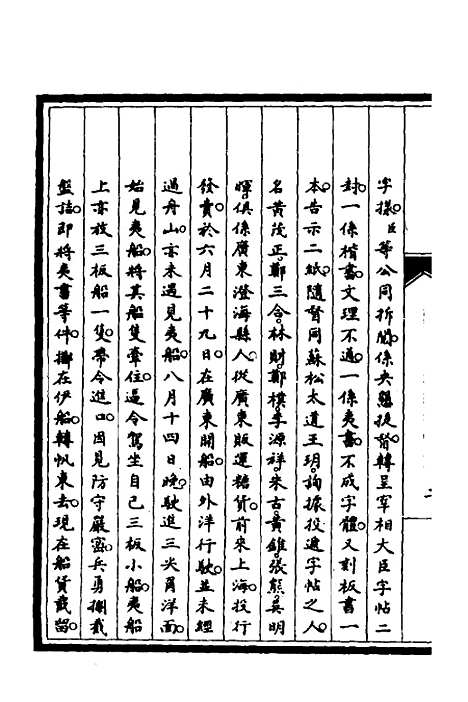 字樣臣等公同拆閱係夾單提督轉呈宰相大臣字帖二
封一係楷書文理不通一係夷書不成字體又刻板書一
本告示二紙隨督同蘇松太道王玥詢據投遞字帖之人
名黃茂正鄭三合林財鄭樸李源祥朱古黃雄張熊吳明
暉俱係廣東澄海縣人從廣東販運糖貨前來上海投行
發賣於六月二十九日在廣東開船由外洋行駛並未經
過舟山亦未遇見夷船八月十四日晚駛進三尖角洋面
始見夷船將其船隻牽住逼令駕坐自己三板小船夷船
上亦放三板船一隻帶令進口因見防守嚴密兵勇攔截
盤詰即將夷書等件擲在伊船轉帆東去現在船貨截留